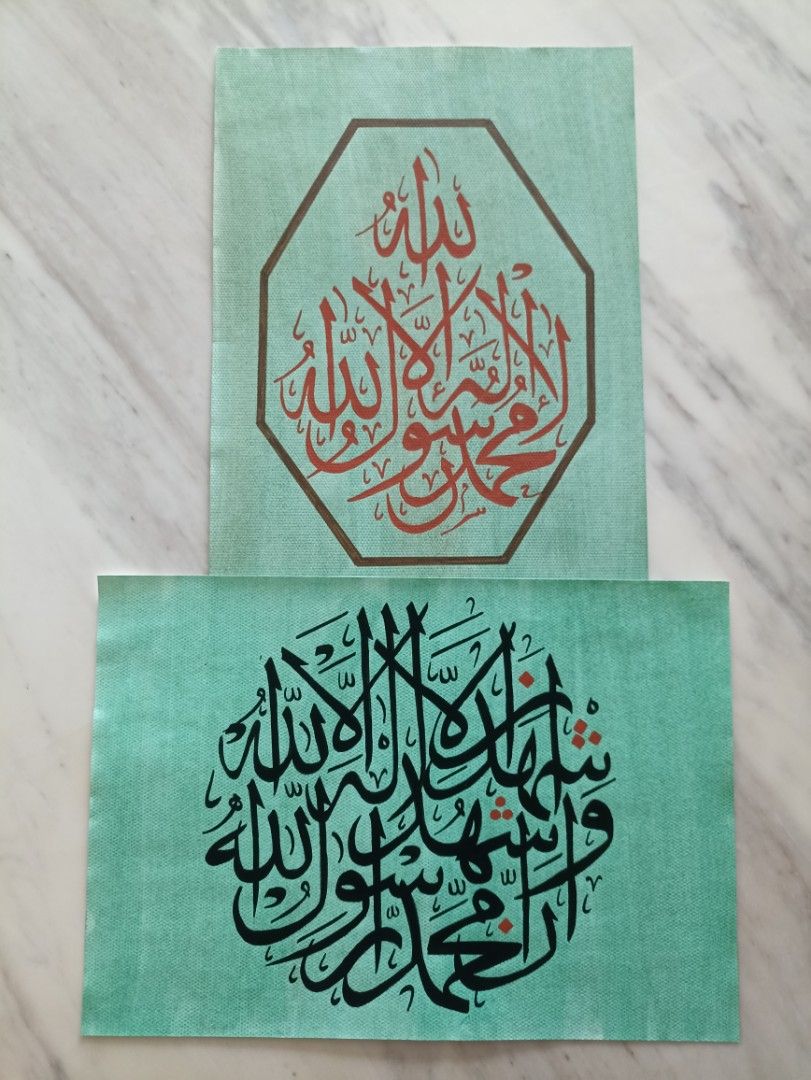 لا إله إلا الله
محمد رسول الله
أشهد أن لا إله إلا الله
وأشهد أن محمدا رسول الله